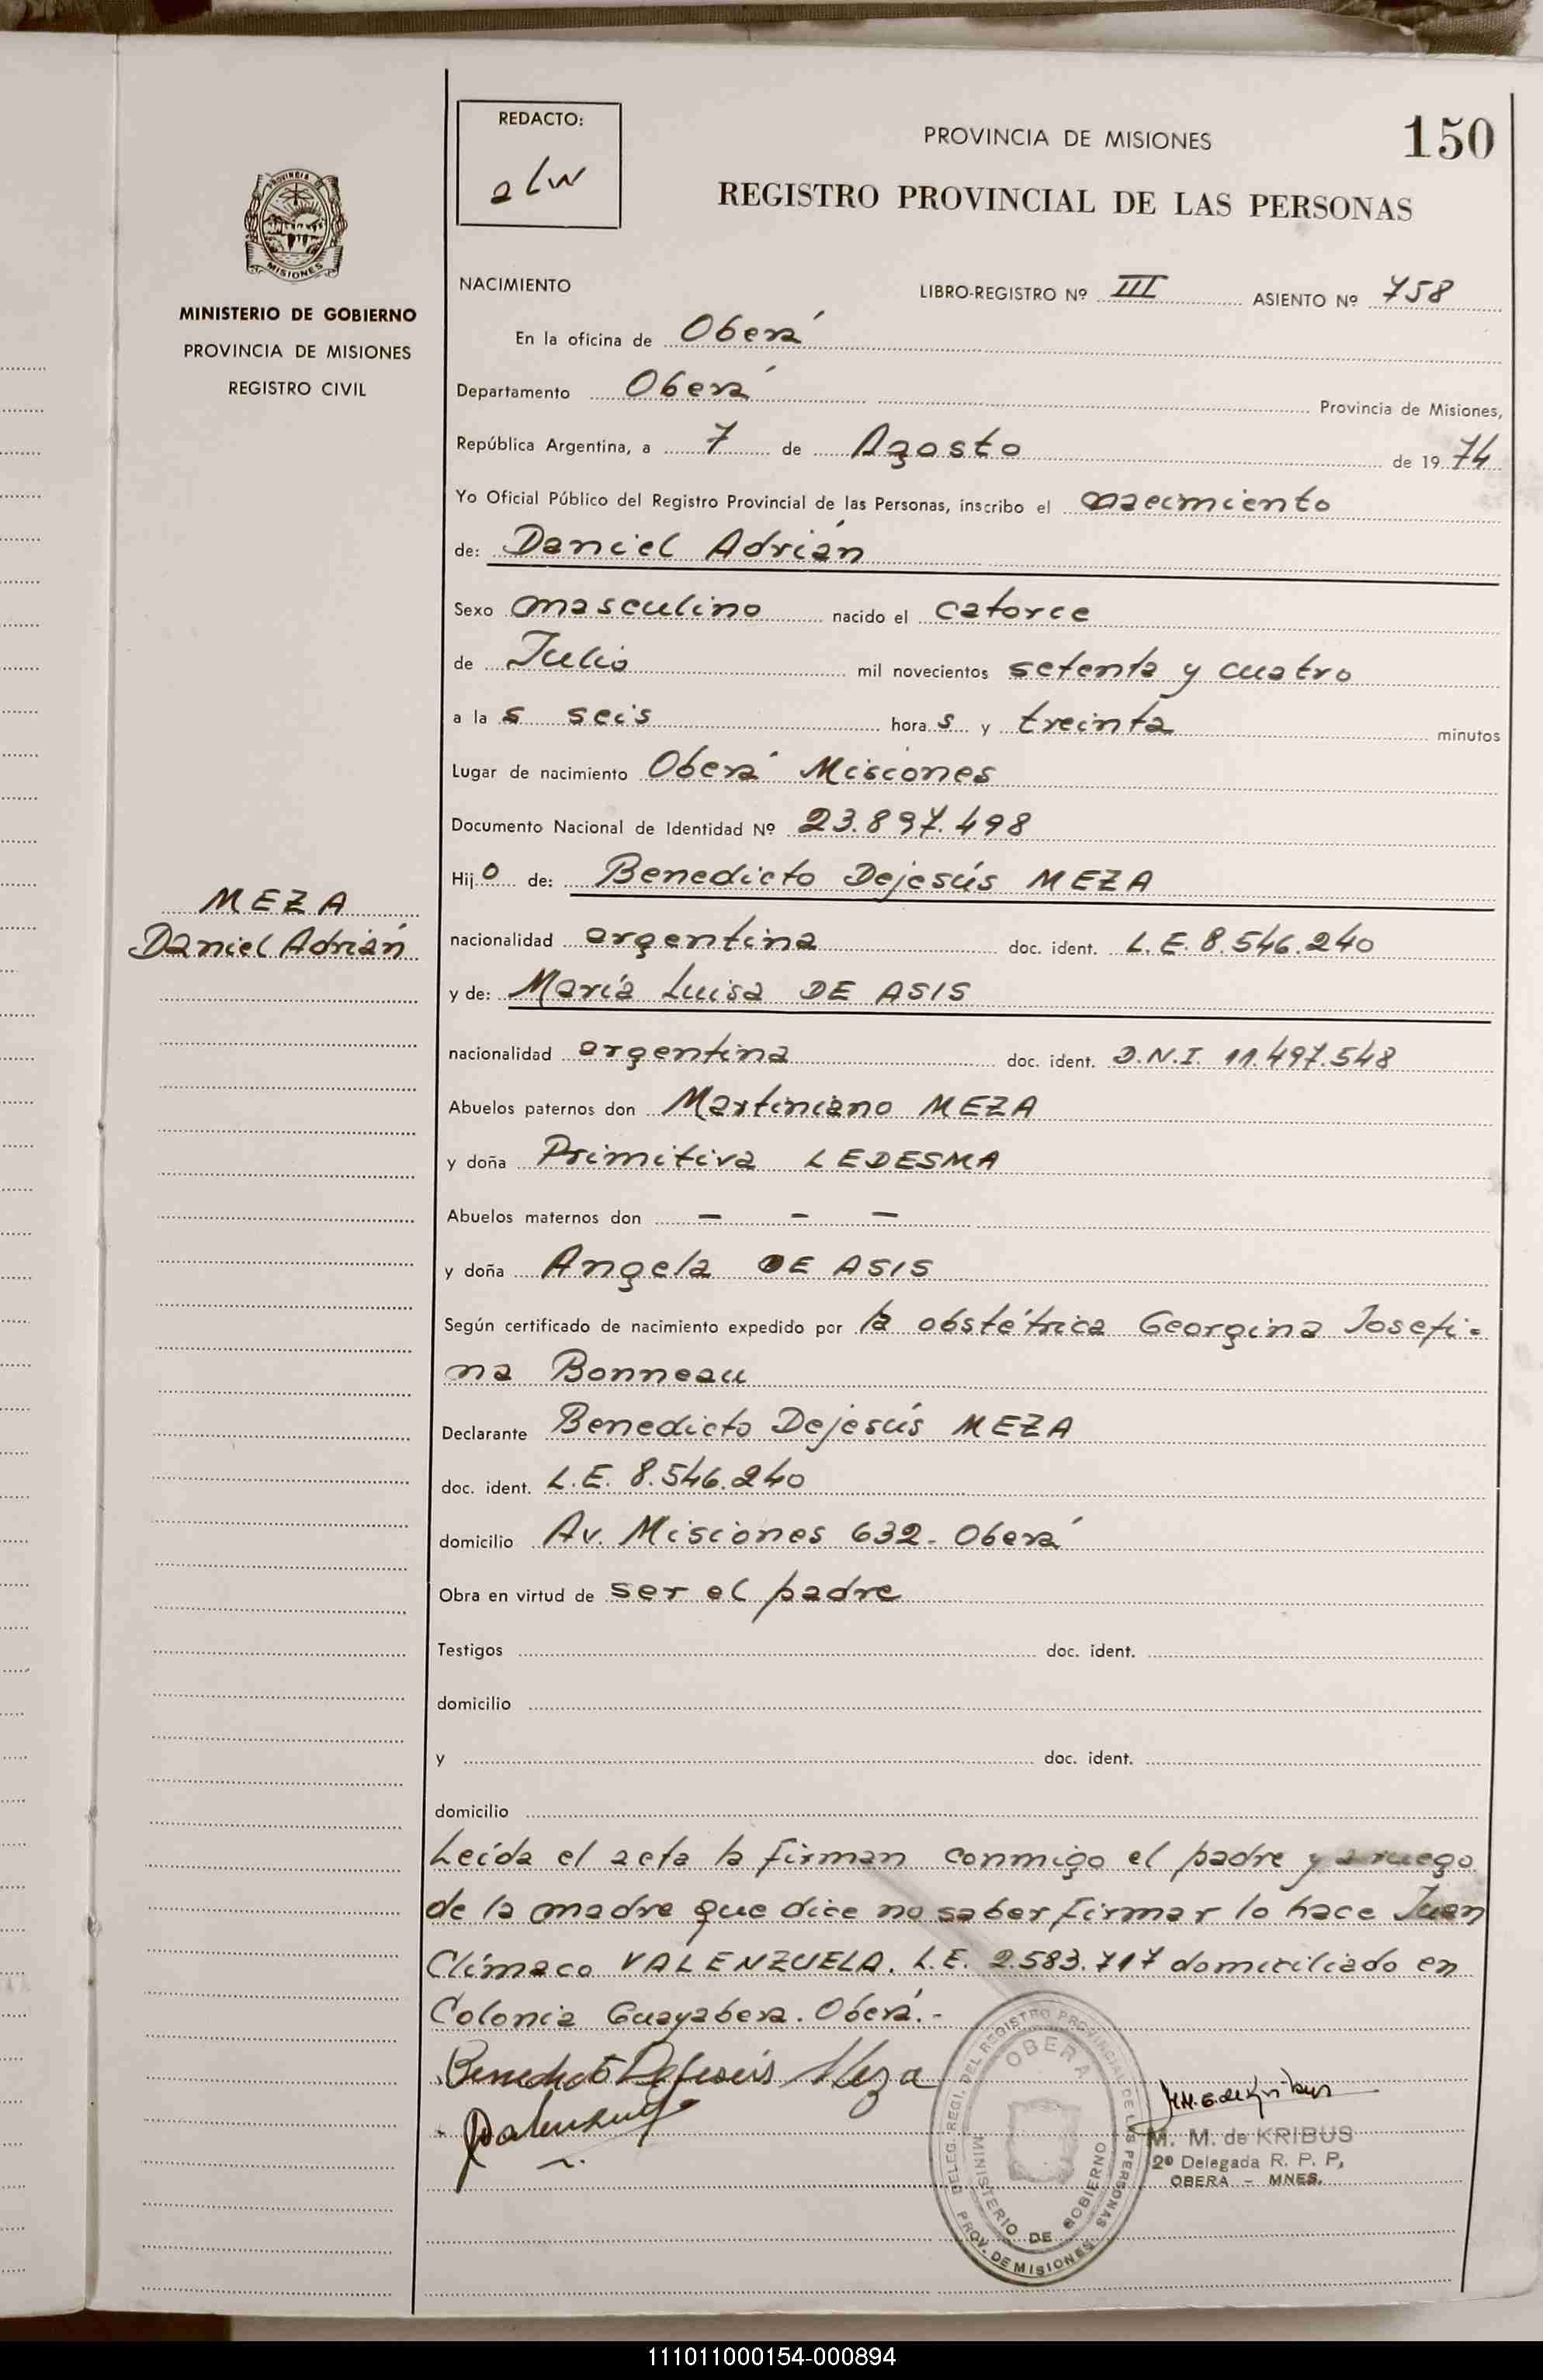 REDACTO:
PROVINCIA DE MISIONES
150
REGISTRO PROVINCIAL DE LAS PERSONAS
PROVINCIA DE
MISIONES
MINISTERIO DE GOBIERNO
PROVINCIA DE MISIONES
REGISTRO CIVIL
NACIMIENTO
LIBRO-REGISTRO Nº III ASIENTO Nº 758
En la oficina de Oberá
Departamento Oberá Provincia de Misiones,
República Argentina, a 7 de Agosto de 1974
Yo Oficial Público del Registro Provincial de las Personas, inscribo el nacimiento
de: Daniel Adrián
Sexo masculino nacido el catorce
de Julio mil novecientos setenta y cuatro
a las seis horas y treinta minutos
Lugar de nacimiento Oberá Misiones
Documento Nacional de Identidad Nº 23.897.498
Hijo de: Benedicto Dejesús MEZA
MEZA
Daniel Adrián
nacionalidad argentina doc. ident. L.E. 8.546.240
y de: María Luisa DE ASIS
nacionalidad argentina doc. ident. D.N.I. 11.497.548
Abuelos paternos don Martiniano MEZA
y doña Primitiva LEDESMA
Abuelos maternos don — — —
y doña Angela DE ASIS
Según certificado de nacimiento expedido por la obstétrica Georgina Josefi-
na Bonneau
Declarante Benedicto Dejesús MEZA
doc. ident. L.E. 8.546.240
domicilio Av. Misiones 632 - Oberá
Obra en virtud de ser el padre
Testigos doc. ident.
domicilio
y doc. ident.
domicilio
Leída el acta la firman conmigo el padre y a ruego
de la madre que dice no saber firmar lo hace Juan
Clímaco VALENZUELA. L.E. 2.583.717 domiciliado en
Colonia Guayabera. Oberá.-
Benedicto Dejesús Meza
DELEG. REGI. DEL REGISTRO PROVINCIAL DE LAS PERSONAS
OBERA
MINISTERIO DE GOBIERNO
PROV. DE MISIONES
M. M. de KRIBUS
2º Delegada R. P. P,
OBERA - MNES.
111011000154-000894